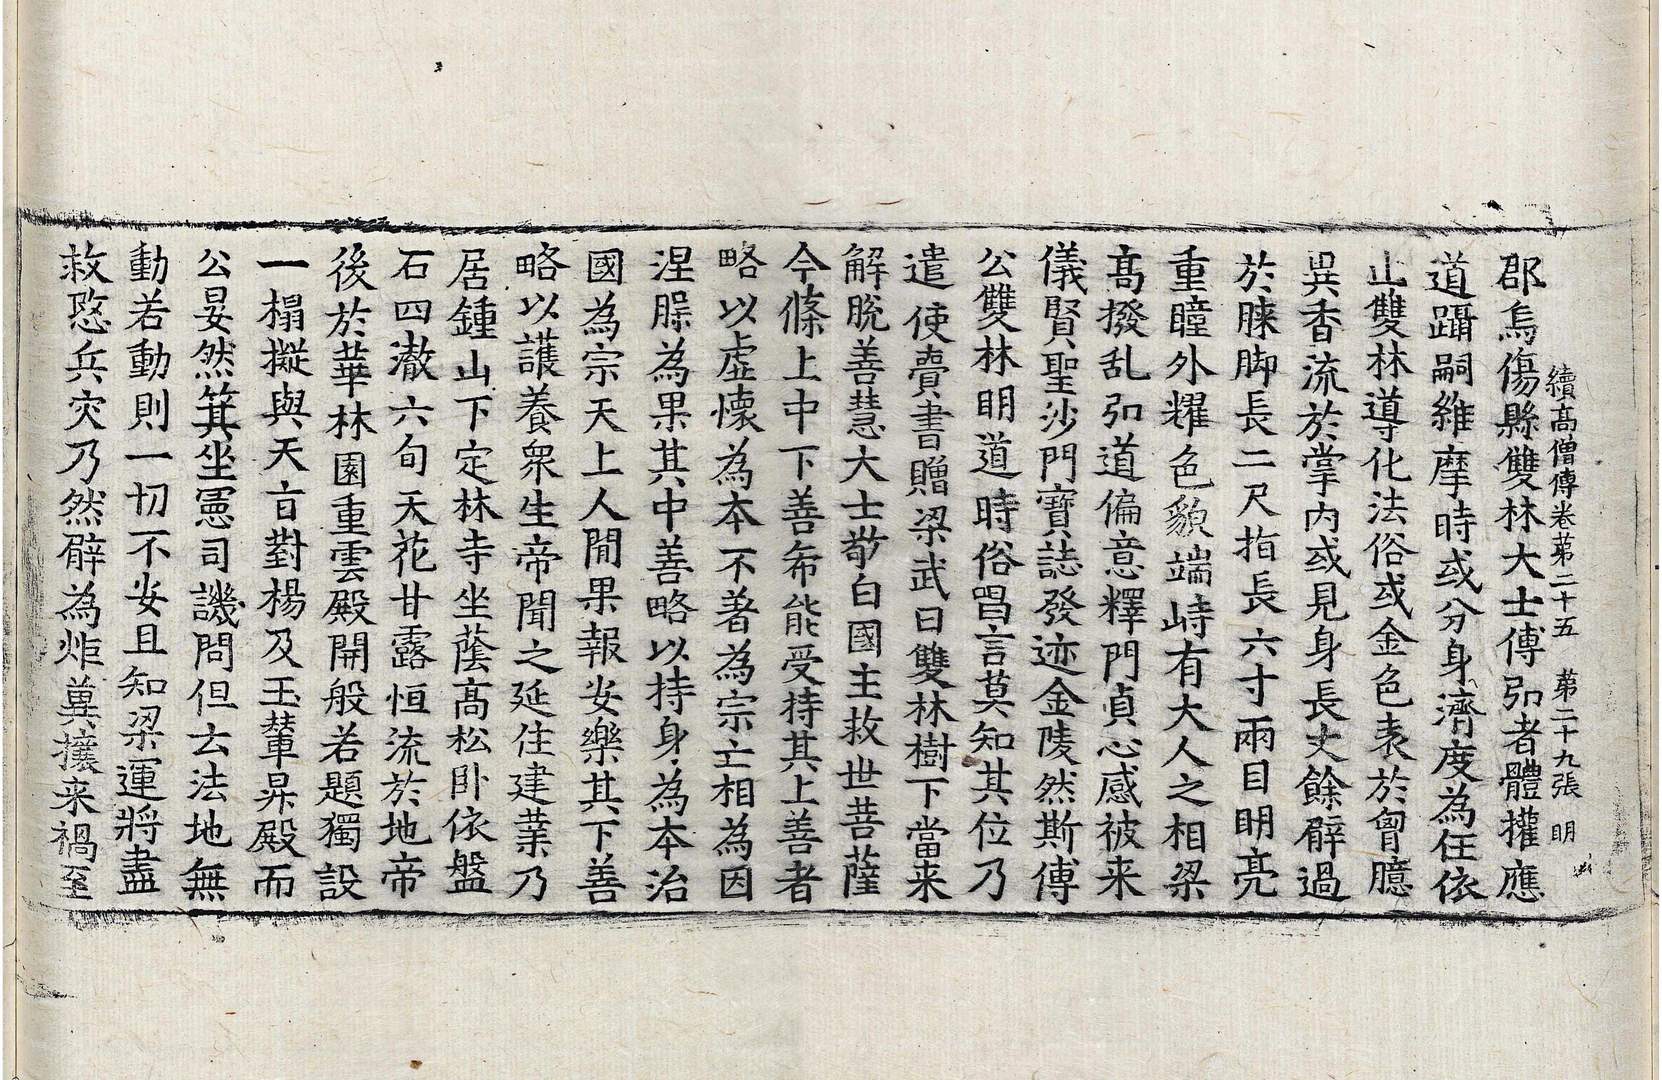 續高僧傳卷苐二十五　苐二十九張　明
郡烏傷縣雙林大士傅弘者體權應
道躡嗣維摩時或分身濟度為任依
止雙林導化法俗或金色表於胷臆
異香流於掌內或見身長丈餘臂過
於膝脚長二尺指長六寸兩目明亮
重瞳外耀色貌端峙有大人之相梁
髙撥乱弘道偏意釋門貞心感被来
儀賢聖沙門寶誌發迹金陵然斯傅
公雙林明道時俗昌言莫知其位乃
遣使賷書贈梁武曰雙林樹下當来
解脫善慧大士敬白國主救世菩薩
今條上中下善希能受持其上善者
略以虛懷為本不著為宗亡相為因
涅槃為果其中善略以持身為本治
國為宗天上人閒果報安樂其下善
略以護養衆生帝聞之延住建業乃
居鍾山下定林寺坐蔭髙松卧依盤
石四澈六旬天花甘露恒流於地帝
後於華林園重雲殿開般若題獨設
一榻擬與天㫖對楊及玉輦昇殿而
公晏然箕坐憲司譏問但云法地無
動若動則一切不安且知梁運將盡
救愍兵灾乃然臂為炬兾攘来禍至